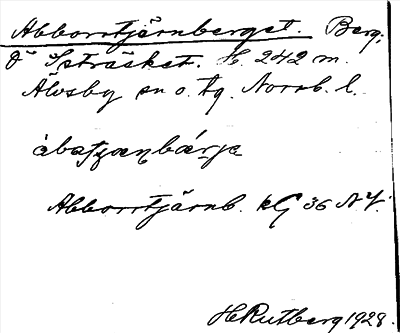 Abborrtjärnberget. Berg,
Ö Isträsket. H. 242 m.
Älvsby sn o. tg. Norrb. l.
Abborrtjärnb. kG 36 NV.
H Rutberg 1928.